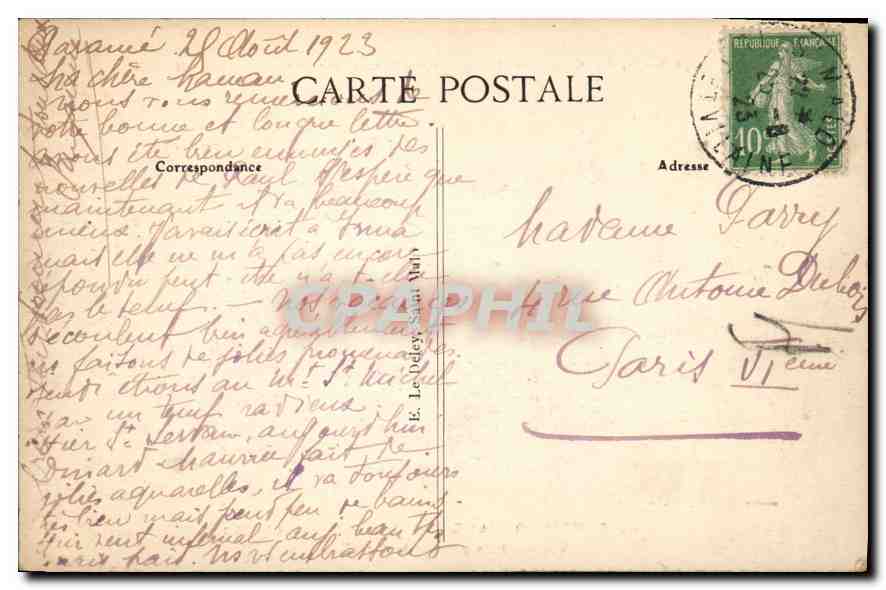 Paramé 28 Août 1923
Ma chère Maman
nous vous remercions de
votre bonne et longue lettre
avons été bien ennuyés des
nouvelles de Paul J'espère que
maintenant il va beaucoup
mieux. J'avais écrit à
mais elle ne m'a pas encore
répondu peut-être n'a-t-elle
pas le temps. – nos vacances
s'écoulent bien agréablement
ns faisons de jolies promenades.
étions au Mt St Michel
par un temps radieux.
Hier St Servan, aujourd'hui
Dinard Maurice fait de
jolies aquarelles, il va toujours
très bien mais peu de bains.
vent infernal, auj. beau
mais frais. Ns vs embrassons
CARTE POSTALE
Correspondance
Adresse
E. Le Deley, Saint Malo
REPUBLIQUE FRANÇAISE
10
Madame Parry
4 rue Antoine Dubois
Paris VIeme
CPAPHIL